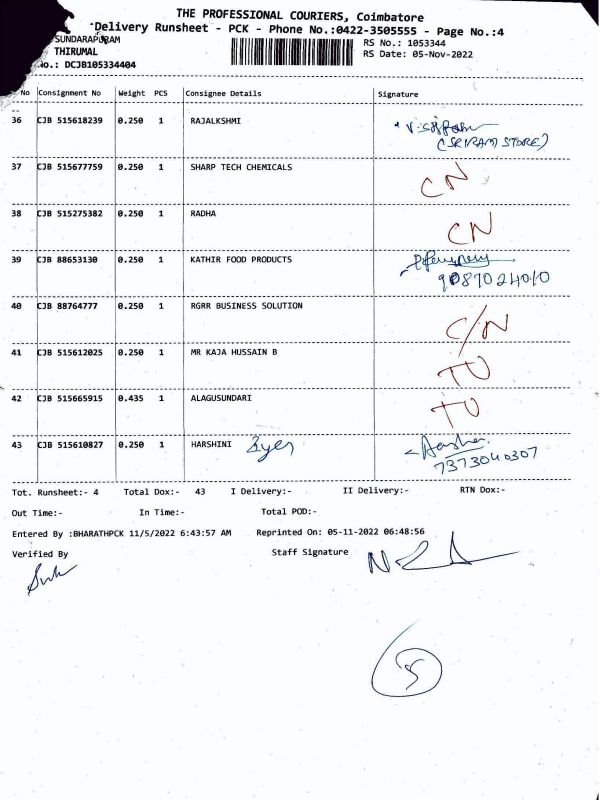 THE PROFESSIONAL COURIERS, Coimbatore
Delivery Runsheet - PCK - Phone No.:0422-3505555 - Page No.:4
SUNDARAPURAM
THIRUMAL
No.: DCJB105334404
RS No.: 1053344
RS Date: 05-Nov-2022
No Consignment No Weight PCS Consignee Details Signature
36 CJB 515618239 0.250 1 RAJALKSHMI
(SRIRAM STORE)
37 CJB 515677759 0.250 1 SHARP TECH CHEMICALS CN
38 CJB 515275382 0.250 1 RADHA CN
39 CJB 88653130 0.250 1 KATHIR FOOD PRODUCTS
9087024010
40 CJB 88764777 0.250 1 RGRR BUSINESS SOLUTION C/N
41 CJB 515612025 0.250 1 MR KAJA HUSSAIN B TU
42 CJB 515665915 0.435 1 ALAGUSUNDARI TU
43 CJB 515610827 0.250 1 HARSHINI
7373040307
Tot. Runsheet:- 4 Total Dox:- 43 I Delivery:- II Delivery:- RTN Dox:-
Out Time:- In Time:- Total POD:-
Entered By :BHARATHPCK 11/5/2022 6:43:57 AM Reprinted On: 05-11-2022 06:48:56
Verified By Staff Signature